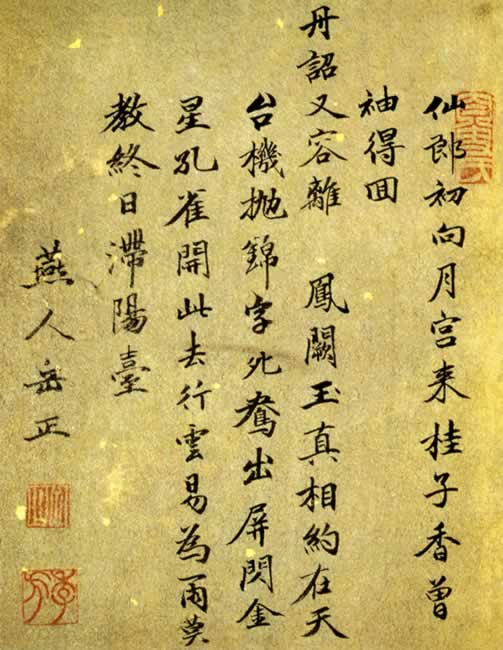 仙郎初向月宮来桂子香曾
袖得囬
丹詔又容離 鳳闕玉真相約在天
台機拋錦字夗鴦出屏閃金
星孔雀開此去行雲易為雨莫
教終日滯陽臺
燕人岳正